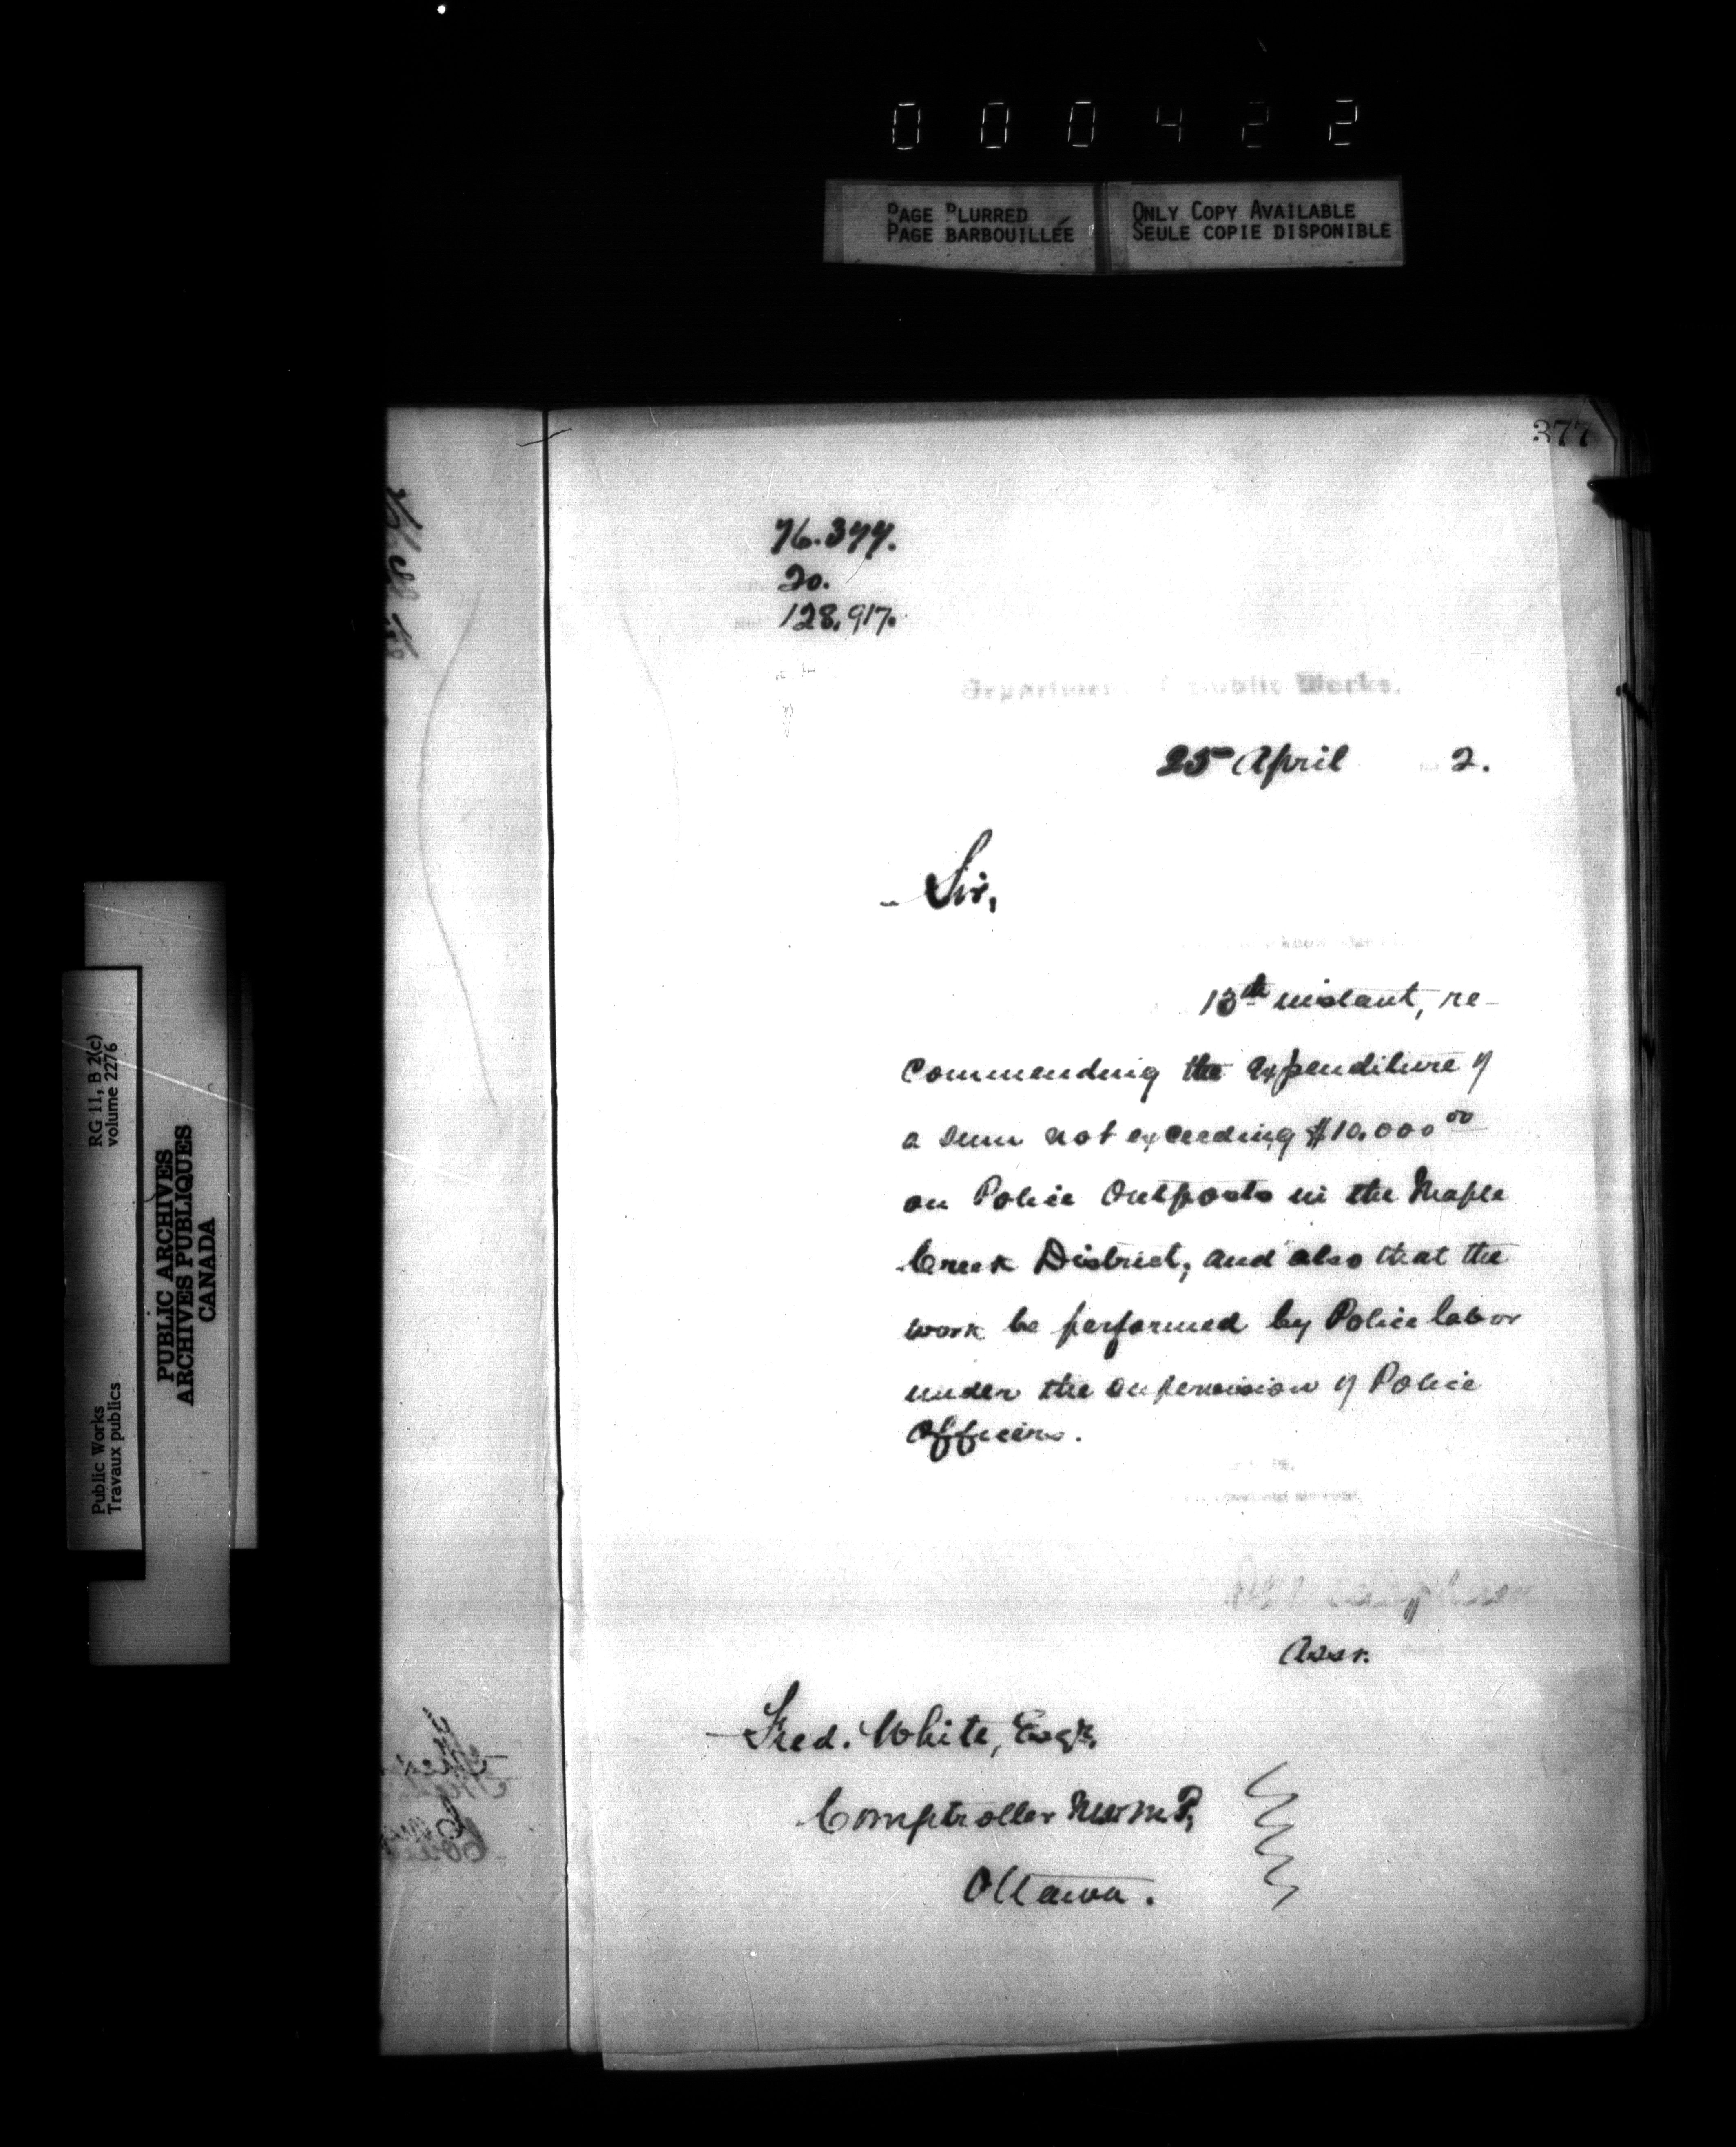 000422
PAGE BLURRED
PAGE BARBOUILLÉE
ONLY COPY AVAILABLE
SEULE COPIE DISPONIBLE
377
76.377.
20.
128,917.
Department Public Works.
25 April 2.
Sir,
13th instant, re-
commending the expenditure of
a sum not exceeding $10.000 00
on Police Outposts in the Maple
Creek District, and also that the
work be performed by Police labor
under the supervision of Police
Officers.
Asst.
Fred. White, Esqr.
Comptroller N.W.M.P,
Ottawa.
RG 11, B 2(c)
volume 2276
Public Works
Travaux publics
PUBLIC ARCHIVES
ARCHIVES PUBLIQUES
CANADA